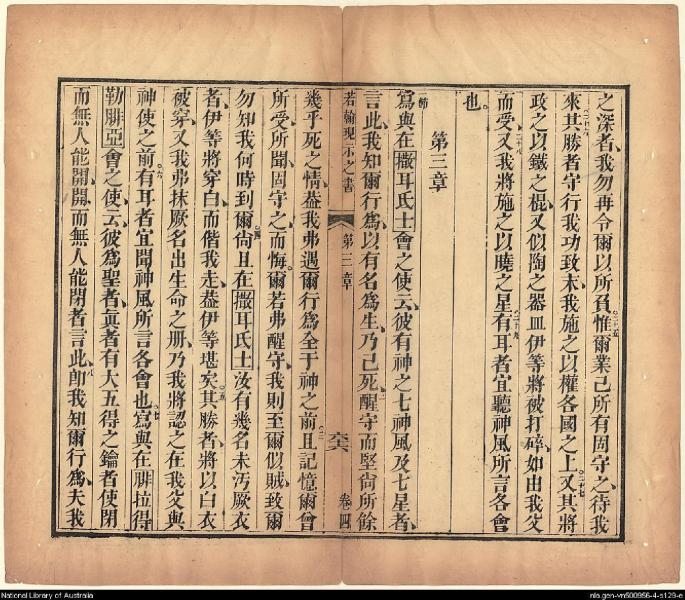 之深者、我勿再令爾以所負、惟爾業已所有固守之、待我
來。其勝者守行我功致末、我施之以權各國之上。又其將
政之以鐵之棍、又似陶之器皿伊等將被打碎、如由我父
而受、又我將施之以曉之星。有耳者宜聽神風所言各會
也。
第三章
一節
寫與在撒耳氏士會之使云、彼有神之七神風及七星者、
言此、我知爾行爲、以有名爲生、乃已死、醒守而堅尙所餘
若翰現示之書
第三章
卷四
幾乎死之情、葢我弗遇爾行爲全于神之前。且記憶爾曾
所受、所聞、固守之、而悔。爾若弗醒守、我則至爾似賊、致爾
勿知我何時到爾。尙且在撒耳氏士汝有幾名未汚厥衣
者、伊等將穿白而偕我走、葢伊等堪矣。其勝者、將以白衣
被穿、又我弗抹厥名出生命之册、乃我將認之在我父與
神使之前。有耳者宜聞神風所言各會也。寫與在腓拉得
勒腓亞會之使云、彼爲聖者、眞者、有大五得之鑰者、使閉
而無人能開、開而無人能閉者言此、卽我知爾行爲、夫我
National Library of Australia
nla.gen-vn500956-4-s129-e